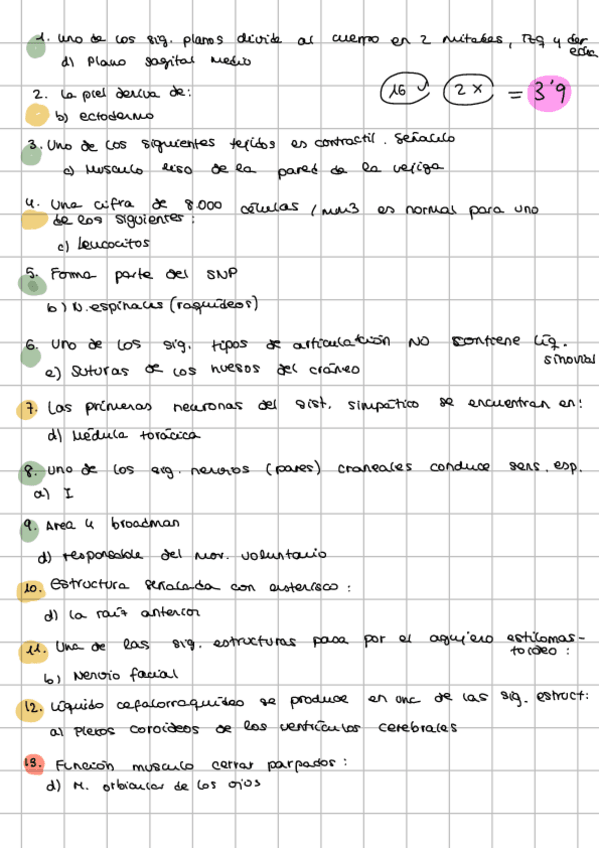 1. Uno de los sig. planos divide al cuerpo en 2 mitades, izq y derecha
d) Plano sagital medio
2. La piel deriva de:
16 ✓ 2 x = 3'9
b) ectodermo
3. Uno de los siguientes tejidos es contractil. Señalalo
c) Musculo liso de la pared de la vejiga
4. Una cifra de 8.000 células / mm3 es normal para uno
de los siguientes:
c) Leucocitos
5. Forma parte del SNP
b) N. espinales (raquídeos)
6. Uno de los sig. tipos de articulación NO contiene liq.
sinovial
e) Suturas de los huesos del cráneo
7. Las primeras neuronas del sist. simpático se encuentran en:
d) Médula torácica
8. Uno de los sig. nervios (pares) craneales conduce sens. esp.
a) I
9. Area 4 broadman
d) responsable del mov. voluntario
10. Estructura señalada con asterisco:
d) La raíz anterior
11. Una de las sig. estructuras pasa por el agujero estilomas-
toideo:
b) Nervio facial
12. Líquido cefalorraquídeo se produce en una de las sig. estruct:
a) Plexos coroideos de los ventrículos cerebrales
13. Función musculo cerrar parpados:
d) M. orbicular de los ojos